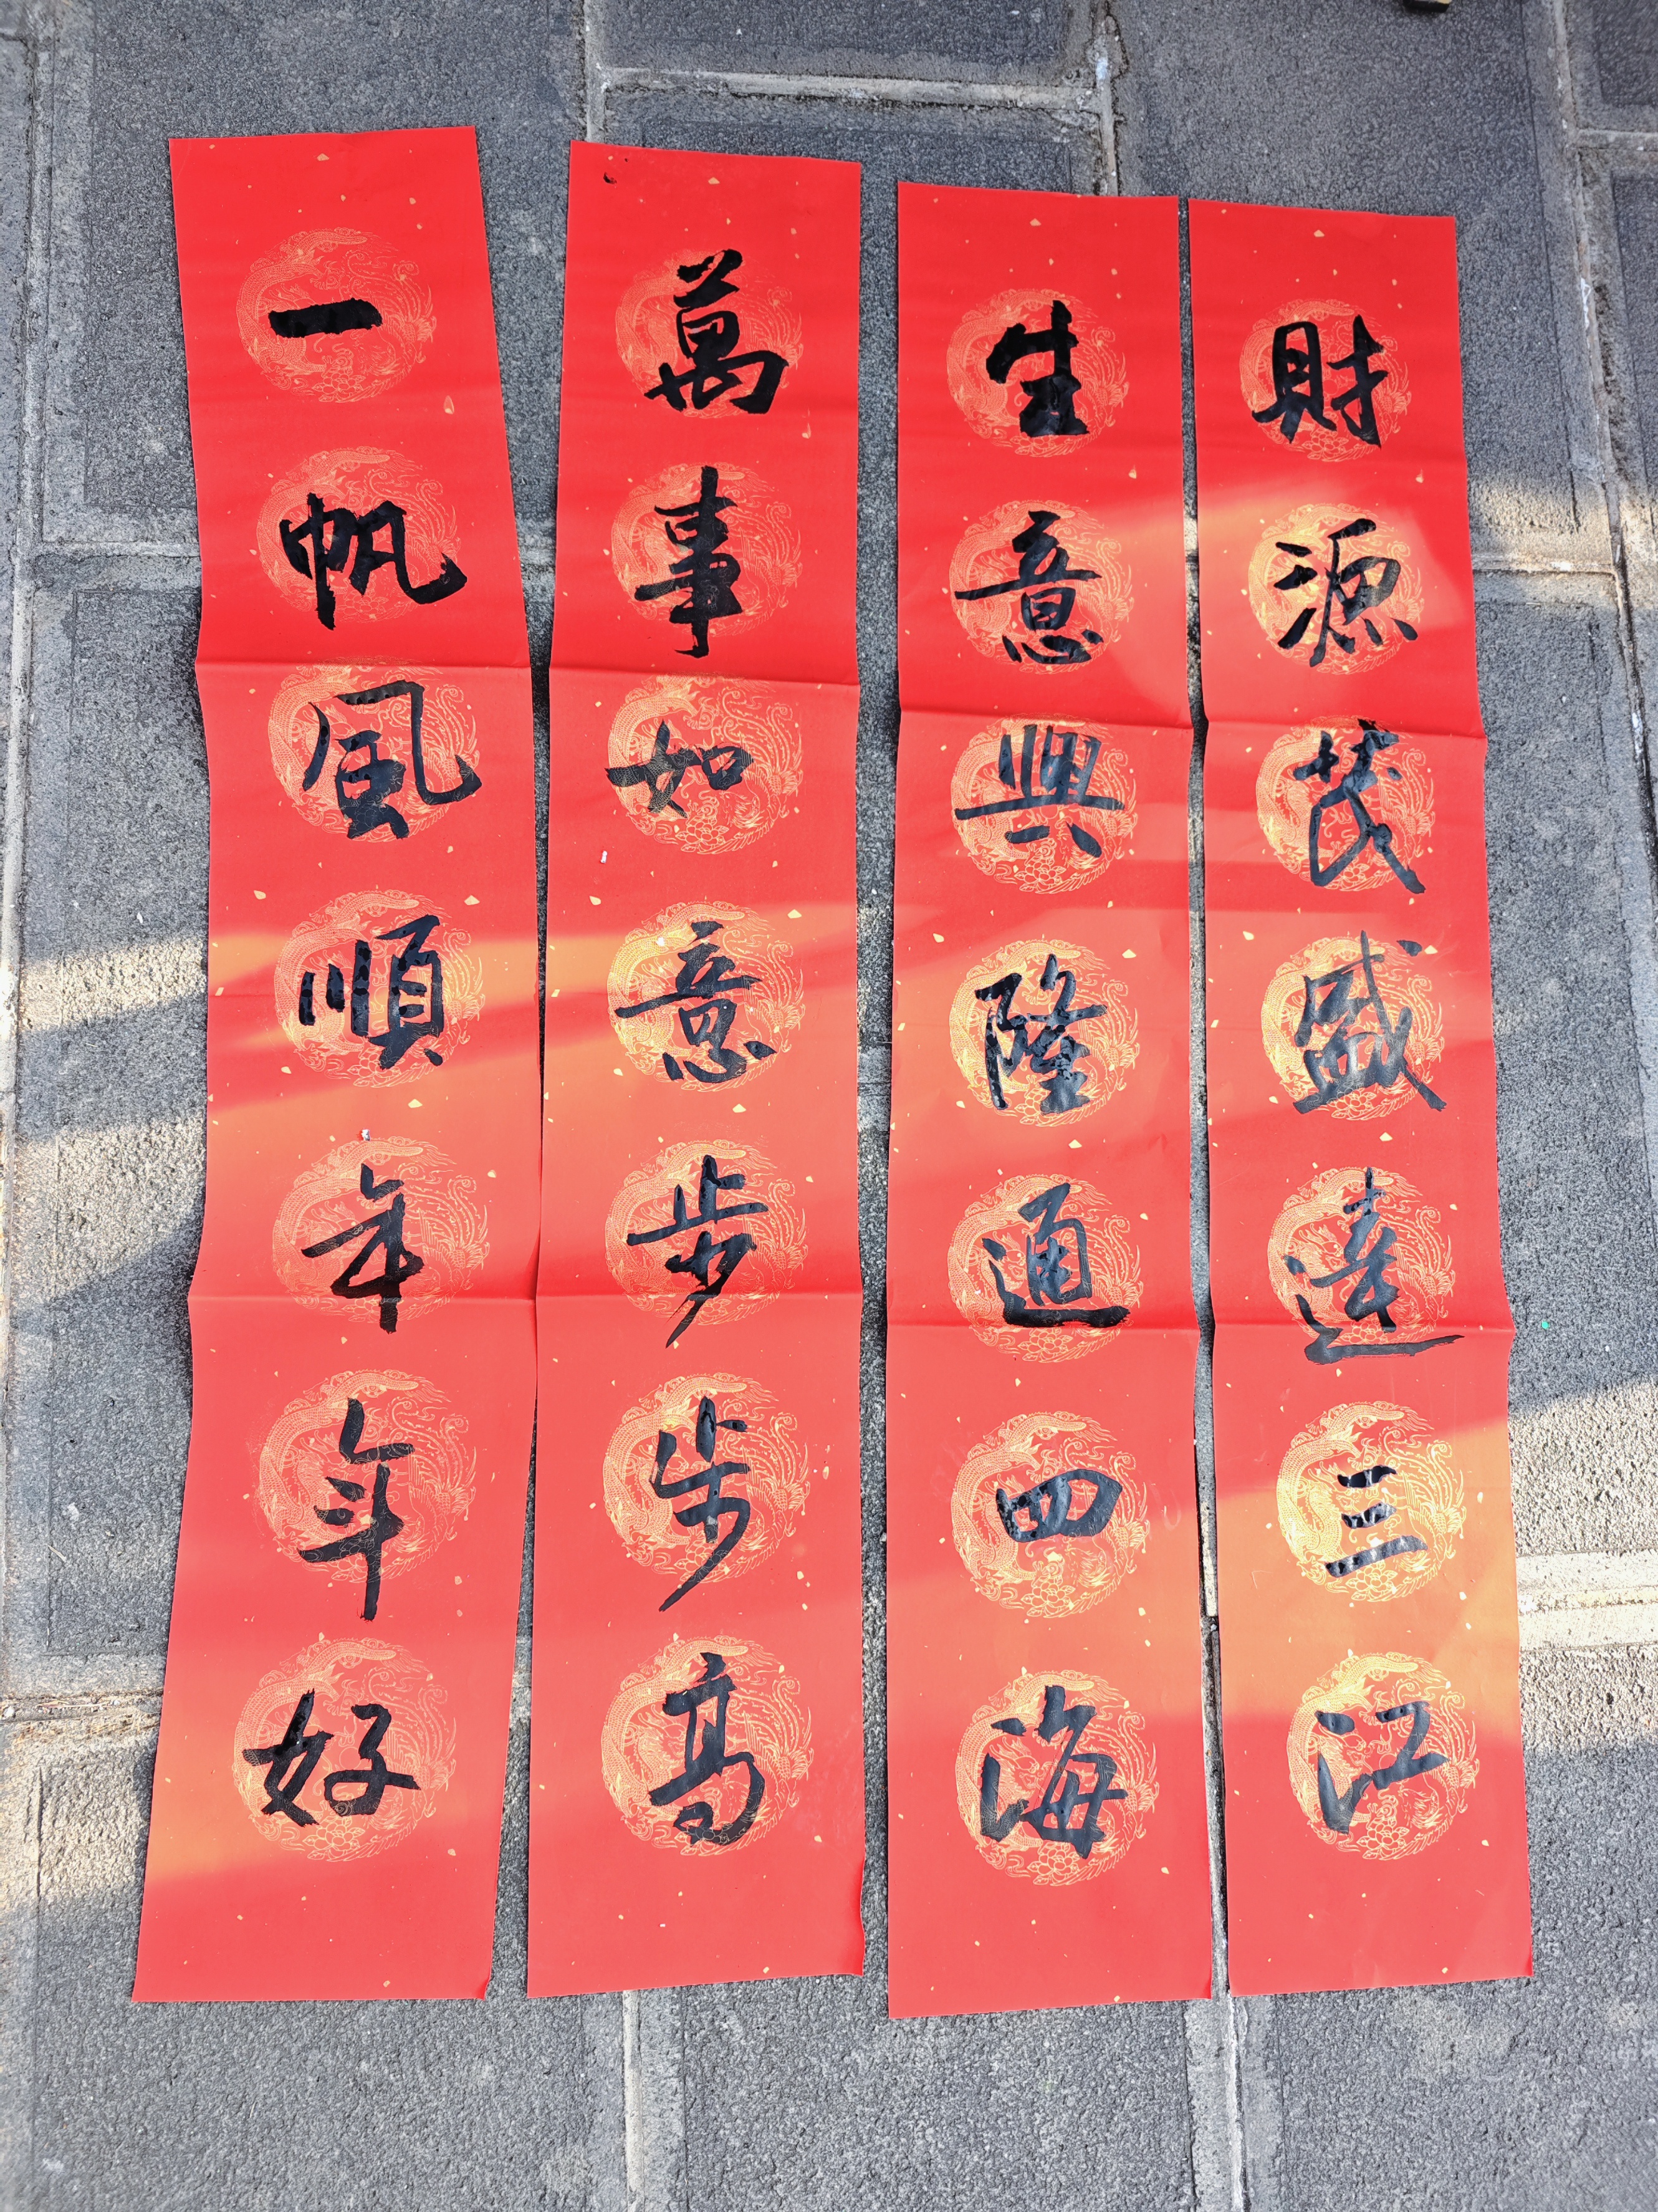 一帆風順年年好
萬事如意步步高
生意興隆通四海
財源茂盛達三江